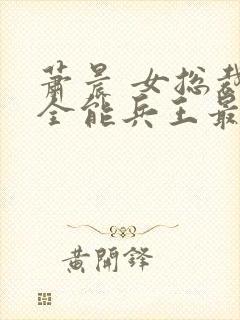 萧晨 女总裁
全能兵王最
黄開鋒